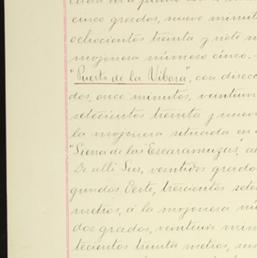 cinco grados, nueve minut
ochocientos treinta y siete m
mojonera número cinco.
"Puerto de la Víbora", con direcc
dos, once minutos, veintiun
setecientos treinta y nueve
la mojonera situada en
"Sierra de las Escaramuzas, a
De allí Sur, veintidos grado
gundos. Este, trescientos sete
metros, á la mojonera nú
dos grados, veintiun min
tecientos treinta metros, su